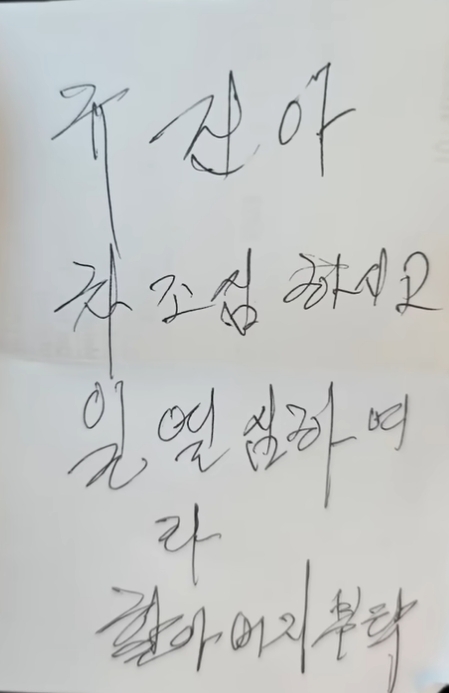 주진아
차조심하시요
일열심하여
라
할아버지부탁